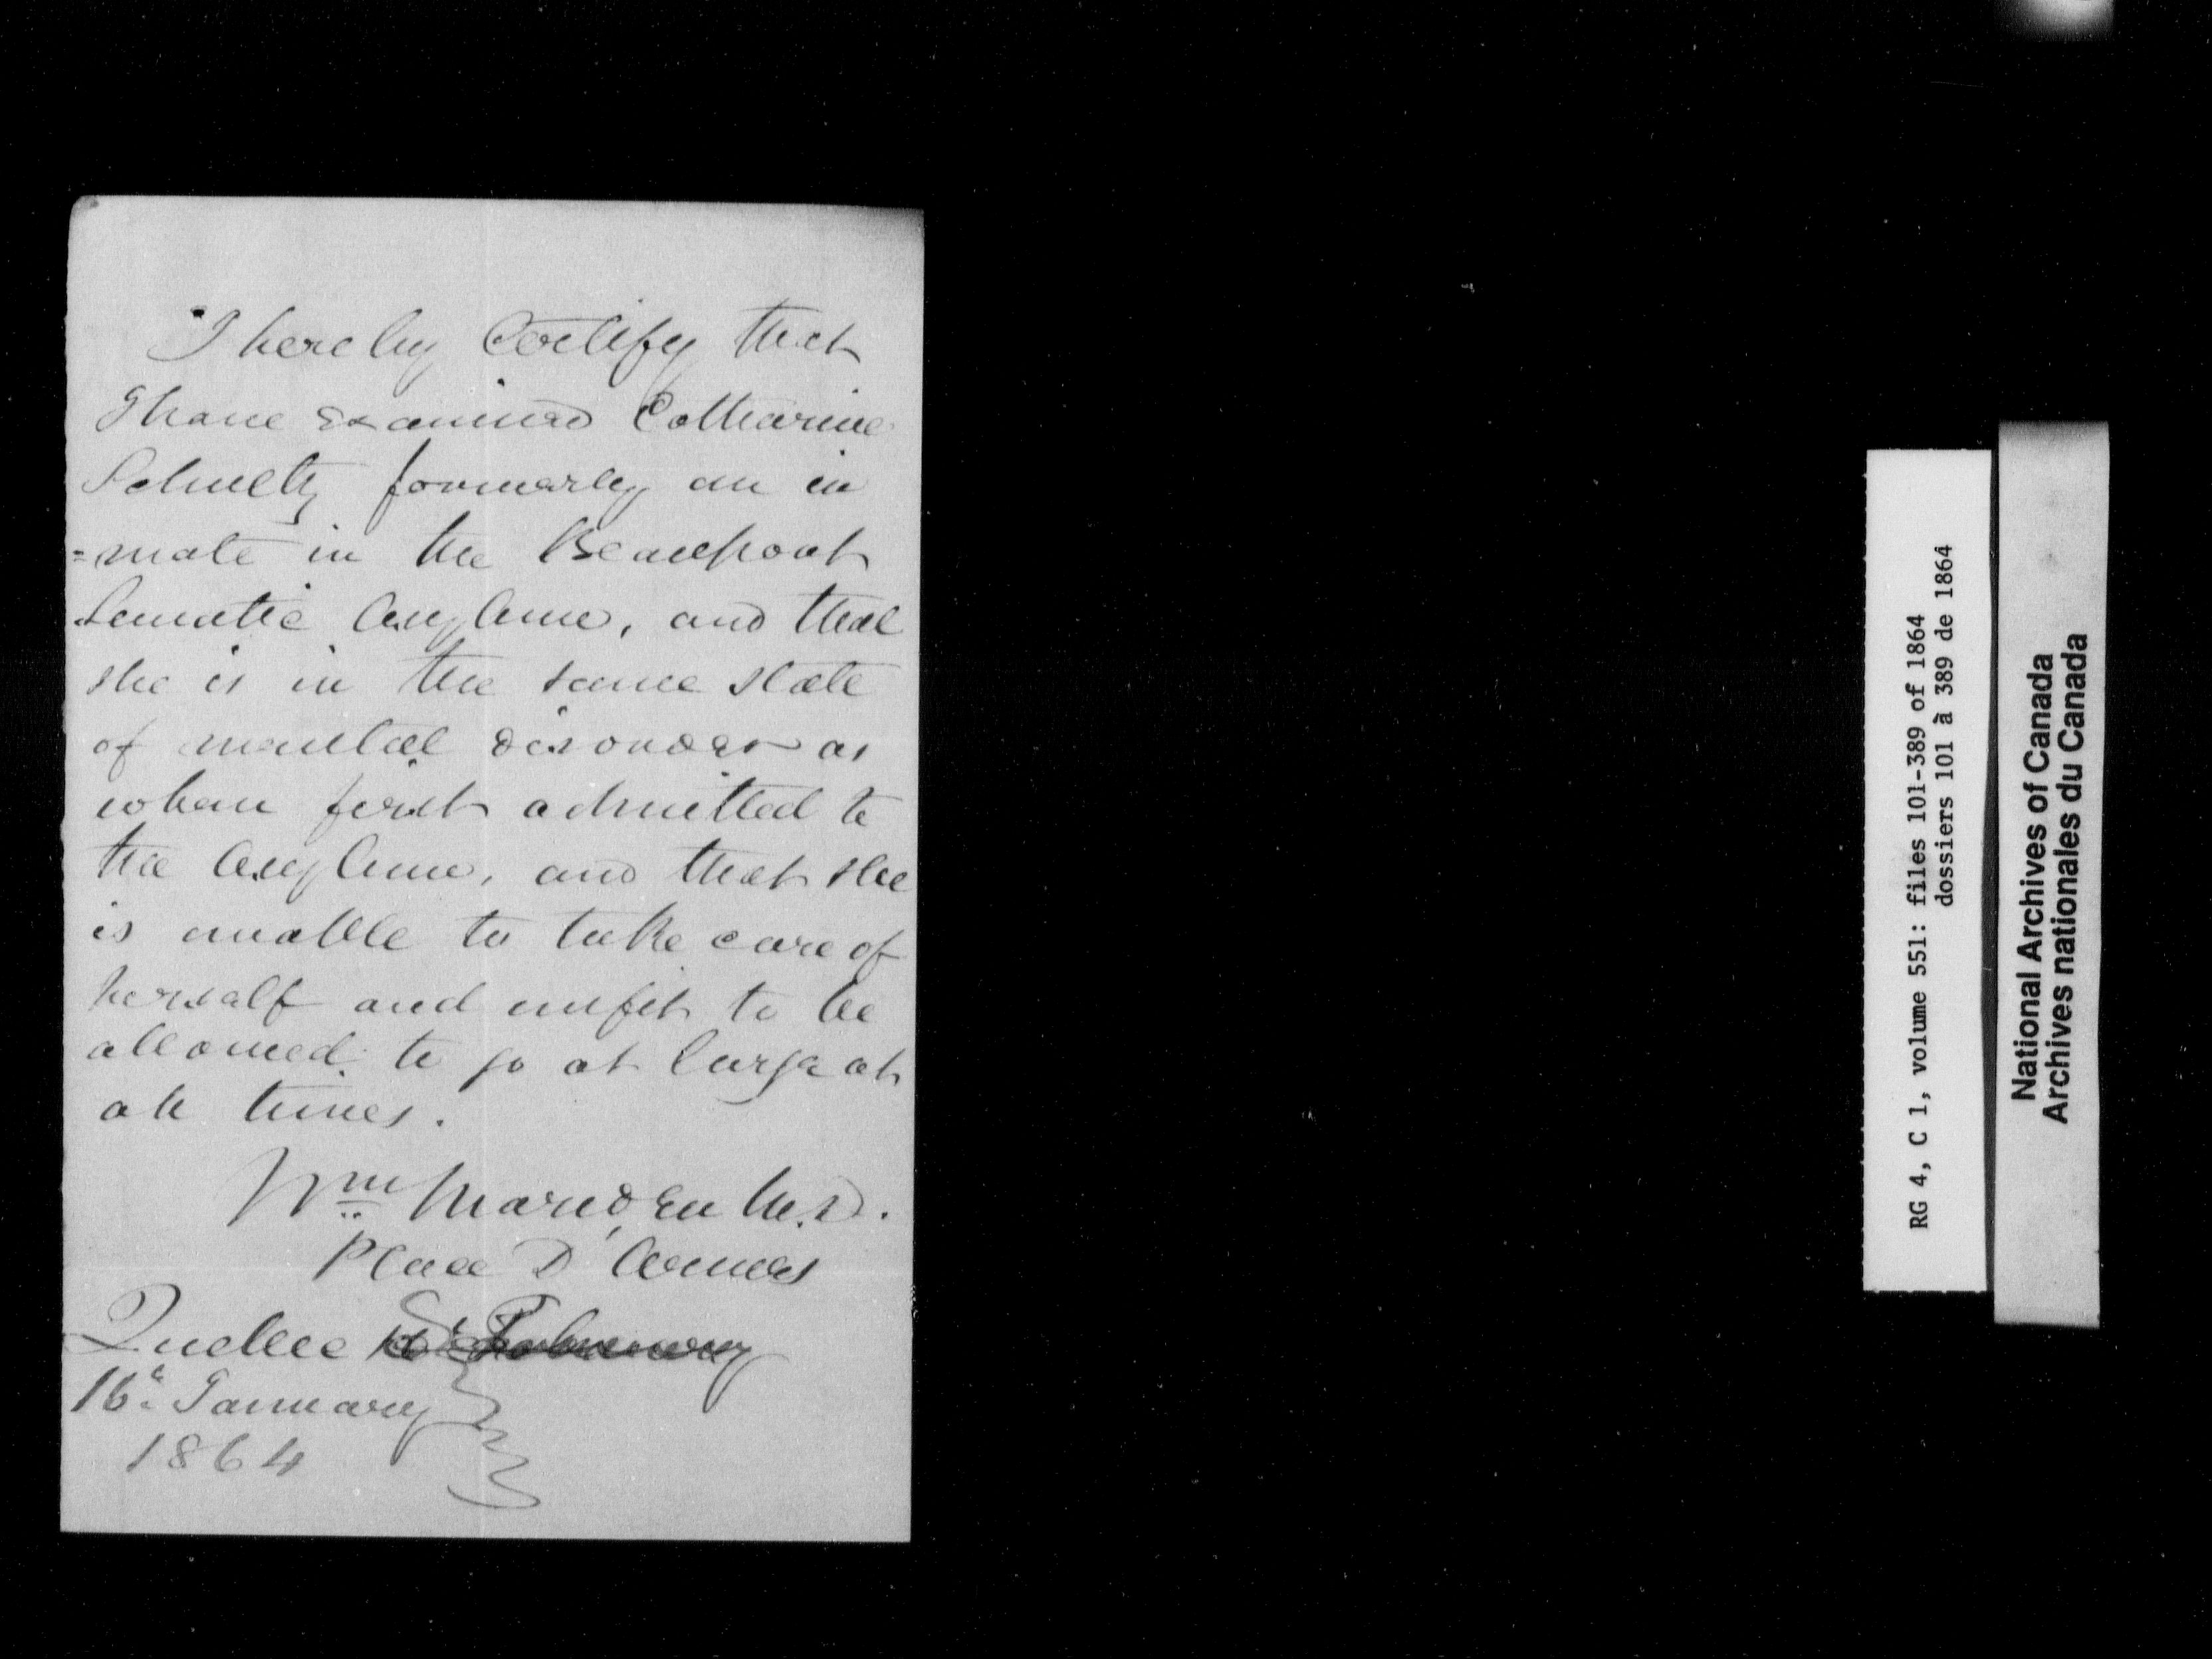 I hereby Certify that
I have examined Catharine
Schultz formerly an in
=mate in the Beauport
Lunatic Asylum, and that
she is in the same state
of mental disorder as
when first admitted to
the Asylum, and that she
is unable to take care of
herself and unfit to be
allowed to go at large at
all times.
Wm Marsden M.D.
Place D'Armes
Quebec 16 February
16th January
1864
RG 4, C 1, volume 551: files 101-389 of 1864
dossiers 101 à 389 de 1864
National Archives of Canada
Archives nationales du Canada